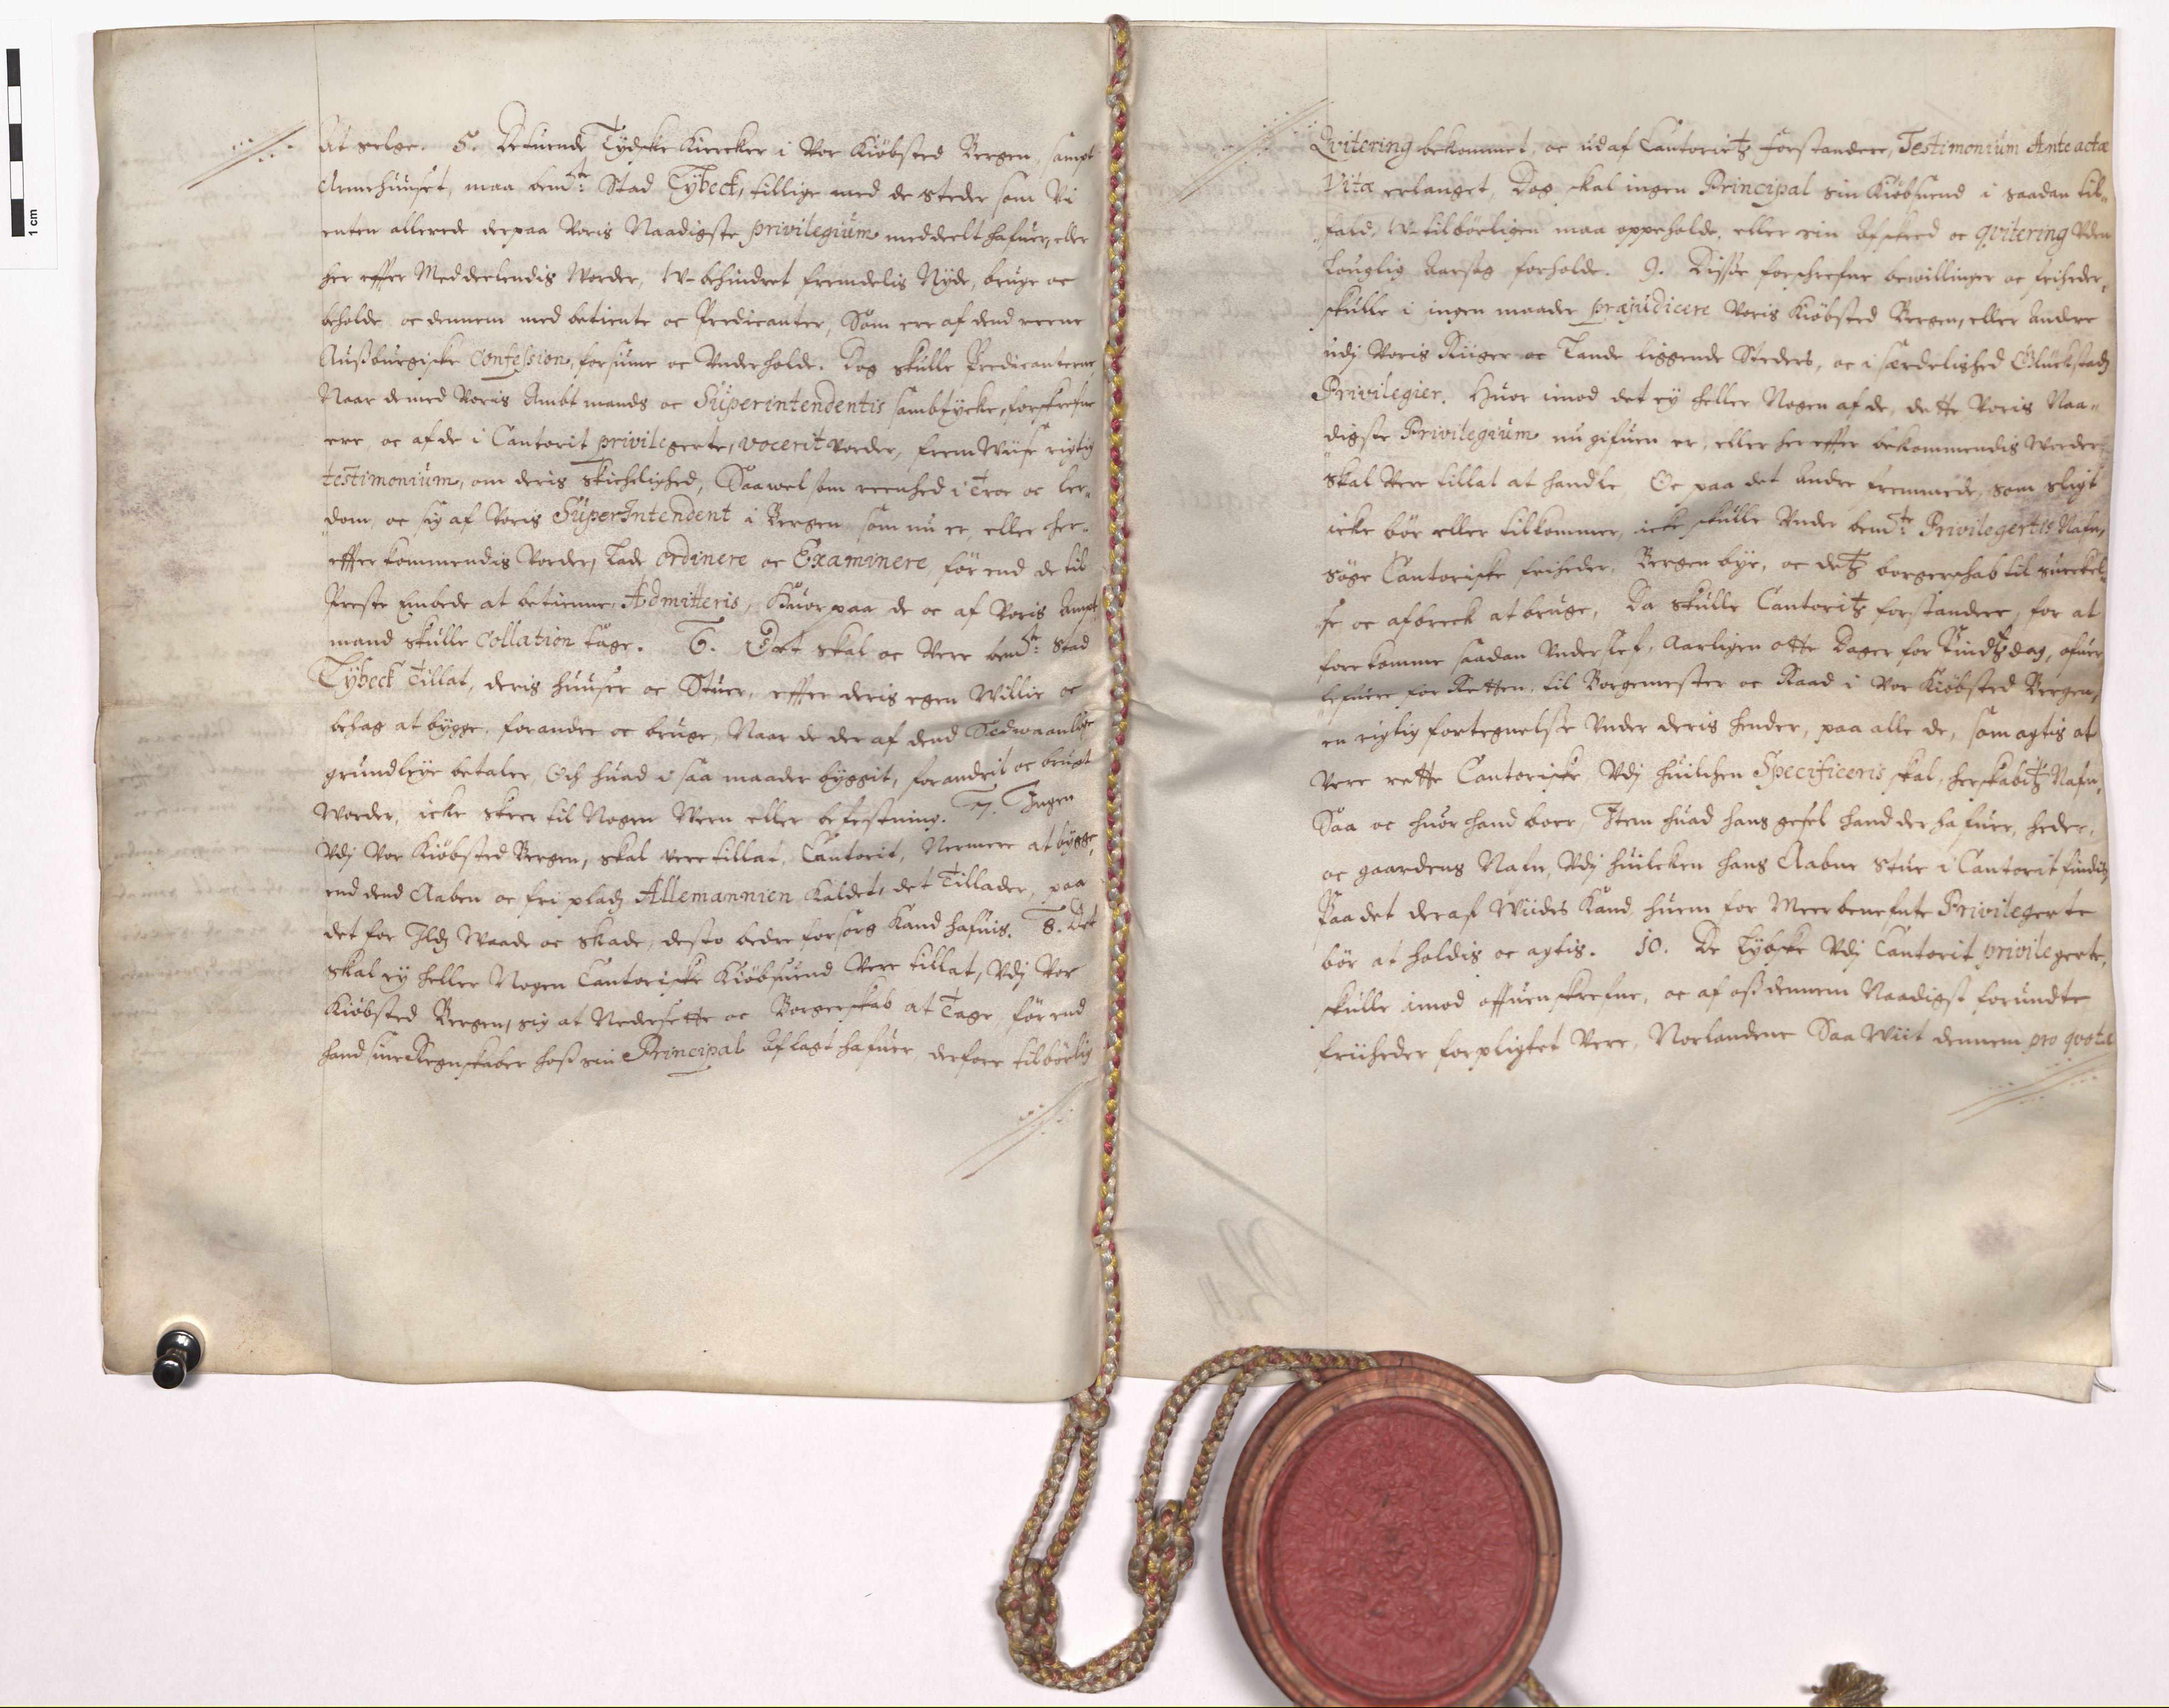 At selge. 5. De tuende Tydske Kiircker i Vor Kiöbsted Bergen, sampt
Armehuuset, maa bemte: Stad Lybeck, tillige med de steder som Vi
enten allerede derpaa Voris Naadigste privilegium meddeelt hafuer, eller
her effter Meddeelendis Worder, W-behindret fremdelis Nyde, bruge oc
beholde, oc dennem med betiente oc Predicanter, Som ere af dend reene
Außburgiske Confession, forsiune oc Underholde. Dog skulle Predicanterne
Naar de med Voris Ambtmands oc Superintendentis sambtycke, forskrefne
ere, oc af de i Cantorit privilegerte, vocerit vorder, frem Wiise rigtig
testimonium, om deris Skickelighed, Saawel som reenhed i Troe oc ler-
dom, oc sig af Voris SuperIntendent i Bergen som nu er, eller her-
effter kommendis Vorder, Lade ordinere oc Examinere, för end de til
Preste Embede at betienne, Admitteris, Huor paa de oc af Voris Ampt
mand skulle Collation tage. 6. Det skal oc Vere bemte: Stad
Lybeck Tillat, deris huuser oc Stuer, effter deris egen Willie oc
behag at bygge, forandre oc bruge, Naar de der af dend Sedwaanlige
grundleye betaler, Och huad i saa maader byggit, forandrit oc brugt
Worder, icke skeer til Nogen Wern eller befestning. 7. Ingen
Udj Vor Kiöbsted Bergen, skal vere tillat, Cantorit, Nermere at bygge,
end dend Aaben oc fri pladz Allemannien kaldet, det Tillader, paa
det for Ilds Waade oc skade, desto bedre forsorg Kand hafuis. 8. Det
skal ey heller Nogen Cantoriske Kiöbsuend Vere tillat, Udj Vor
Kiöbsted Bergen, sig at Nedersette oc Borgerskab at Tage, för end
hand sine Regnskaber hoß sin Principal aflagt hafuer, derfore tilbörlig
Qvitering bekommet, oc udaf Cantoritz forstandere, Testimonium Ante actæ
Vitæ erlanget, Dog skal ingen Principal sin Kiöbsuend i saadan til-
fald, W-tilbörligen maa oppeholde, eller sin Afskeed oc qvitering Uden
Louglig Aarsag forholde. 9. Disse forschrefne bewillinger oc friheder,
skulle i ingen maader præjudicere Voris Kiöbsted Bergen, eller Andre
udj Voris Riiger oc Lande liggende Steders, oc i særdelished Glückstadz
Privilegier. Huor imod det ey heller Nogen af de, dette Voris Naa-
digste Privilegium nu gifuen er, eller her effter bekommendis Worder
skal Vere tillat at handle, Oc paa det Andre fremmede, som sligt
icke bör eller tilkommer, icke skulle Under bemte: Privilegertis Nafn,
söge Cantoriske friheder, Bergen bye, oc detz borgerschab til
se oc afbreck at bruge, Da skulle Cantoritz forstandere, for at
forekomme saadan Underslef, Aarligen otte Dager for Pindtzdag, ofuer
lefuere for Retten, til Borgemester oc Raad i Vor Kiöbsted Bergen,
en rigtig fortegnelse Under deris hender, paa alle de, som agtis at
Vere rette Cantoriske, Udj huilchen Specificeris skal, herskabitz Nafn,
Saa oc huor hand boer, Item huad hans gesel hand der hafuer, heder,
oc gaardens Nafn, Udj huilcken hans Aabne Stue i Cantorit findis
Paa det deraf Wiides Kand, huem for Meerbenefnte Privilegerte
bör at holdis oc agtis. 10. De Lybske Udj Cantorit privilegerte,
skulle imod offuenskrefne, oc af oß dennem Naadigst forundte
friiheder forpligtet Vere, Norlandene Saa Wiit dennem pro qvota